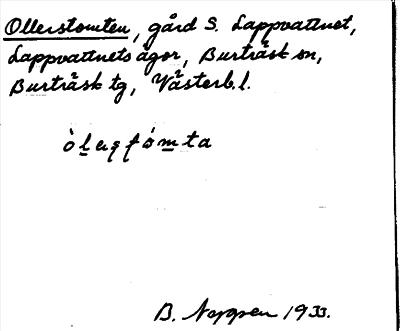 Ollerstomten, gård S. Lappvattnet,
Lappvattnets ägor, Burträsk sn,
Burträsk tg, Västerb. l.
B. 1933.